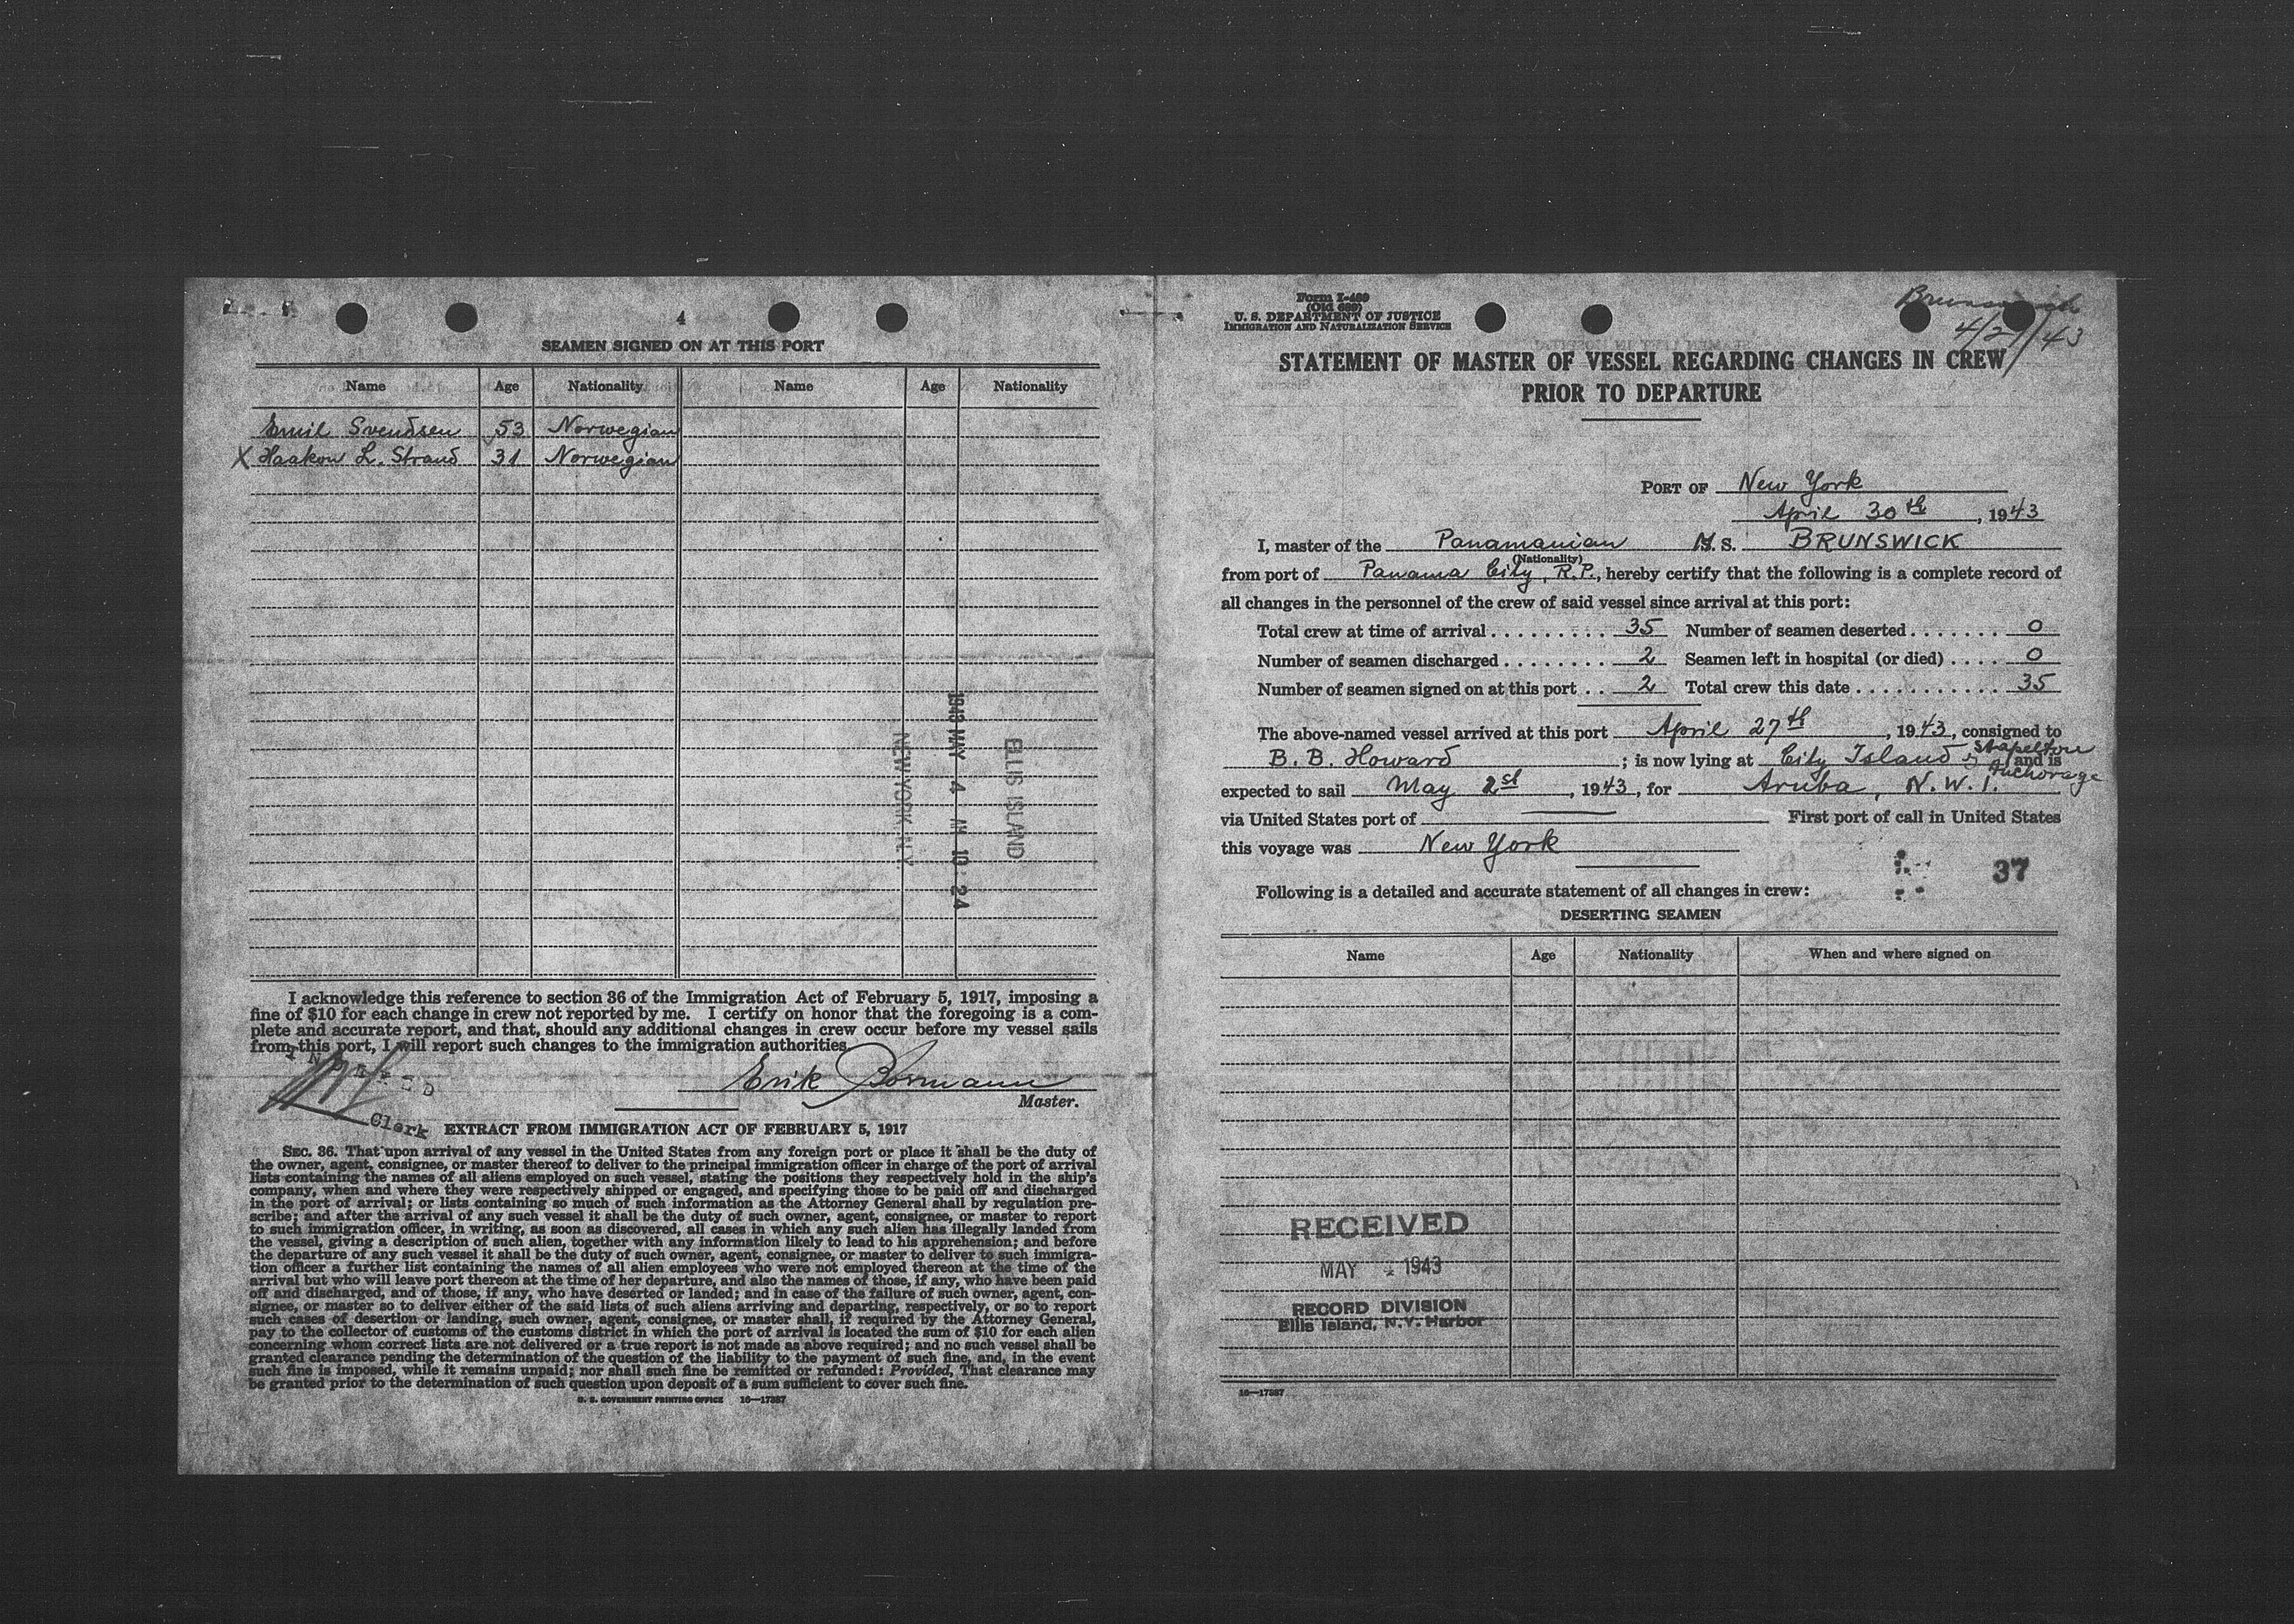 4
SEAMEN SIGNED ON AT THIS PORT
Name Age Nationality Name Age Nationality
Emil Svendsen 53 Norwegian
X Haakon L. Strand 31 Norwegian
1943 MAY 4 AM 10:24
ELLIS ISLAND
NEW YORK N.Y.
I acknowledge this reference to section 36 of the Immigration Act of February 5, 1917, imposing a
fine of $10 for each change in crew not reported by me. I certify on honor that the foregoing is a com-
plete and accurate report, and that, should any additional changes in crew occur before my vessel sails
from this port, I will report such changes to the immigration authorities.
Erik Bormann
Master.
Clerk
EXTRACT FROM IMMIGRATION ACT OF FEBRUARY 5, 1917
SEC. 36. That upon arrival of any vessel in the United States from any foreign port or place it shall be the duty of
the owner, agent, consignee, or master thereof to deliver to the principal immigration officer in charge of the port of arrival
lists containing the names of all aliens employed on such vessel, stating the positions they respectively hold in the ship's
company, when and where they were respectively shipped or engaged, and specifying those to be paid off and discharged
in the port of arrival; or lists containing so much of such information as the Attorney General shall by regulation pre-
scribe; and after the arrival of any such vessel it shall be the duty of such owner, agent, consignee, or master to report
to such immigration officer, in writing, as soon as discovered, all cases in which any such alien has illegally landed from
the vessel, giving a description of such alien, together with any information likely to lead to his apprehension; and before
the departure of any such vessel it shall be the duty of such owner, agent, consignee, or master to deliver to such immigra-
tion officer a further list containing the names of all alien employees who were not employed thereon at the time of the
arrival but who will leave port thereon at the time of her departure, and also the names of those, if any, who have been paid
off and discharged, and of those, if any, who have deserted or landed; and in case of the failure of such owner, agent, con-
signee, or master so to deliver either of the said lists of such aliens arriving and departing, respectively, or so to report
such cases of desertion or landing, such owner, agent, consignee, or master shall, if required by the Attorney General,
pay to the collector of customs of the customs district in which the port of arrival is located the sum of $10 for each alien
concerning whom correct lists are not delivered or a true report is not made as above required; and no such vessel shall be
granted clearance pending the determination of the question of the liability to the payment of such fine, and, in the event
such fine is imposed, while it remains unpaid; nor shall such fine be remitted or refunded: Provided, That clearance may
be granted prior to the determination of such question upon deposit of a sum sufficient to cover such fine.
U. S. GOVERNMENT PRINTING OFFICE 16—17387
Form I-489
(Old 689)
U. S. DEPARTMENT OF JUSTICE
IMMIGRATION AND NATURALIZATION SERVICE
Brunswick
4/27/43
STATEMENT OF MASTER OF VESSEL REGARDING CHANGES IN CREW
PRIOR TO DEPARTURE
PORT OF New York
April 30th, 1943
I, master of the Panamanian M. S. BRUNSWICK
(Nationality)
from port of Panama City, R.P., hereby certify that the following is a complete record of
all changes in the personnel of the crew of said vessel since arrival at this port:
Total crew at time of arrival . . . . . . . . . 35 Number of seamen deserted . . . . . . . 0
Number of seamen discharged . . . . . . . . 2 Seamen left in hospital (or died) . . . . 0
Number of seamen signed on at this port . . 2 Total crew this date . . . . . . . . . . . 35
The above-named vessel arrived at this port April 27th, 1943, consigned to
B. B. Howard ; is now lying at City Island & Stapelton Anchorage and is
expected to sail May 2st, 1943, for Aruba, N.W.I.
via United States port of First port of call in United States
this voyage was New York
37
Following is a detailed and accurate statement of all changes in crew:
DESERTING SEAMEN
Name Age Nationality When and where signed on
RECEIVED
MAY 4 1943
RECORD DIVISION
Ellis Island, N.Y. Harbor
16—17387